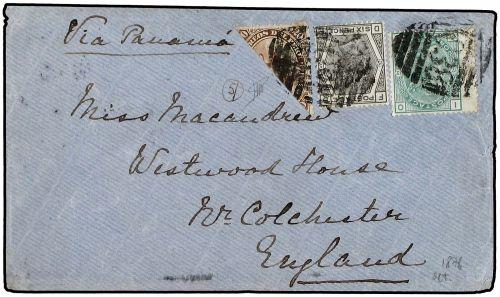 Via Panamá
SIX PENCE
POSTAGE
Miss Macandrew
Westwood House
Nr. Colchester
England
1876